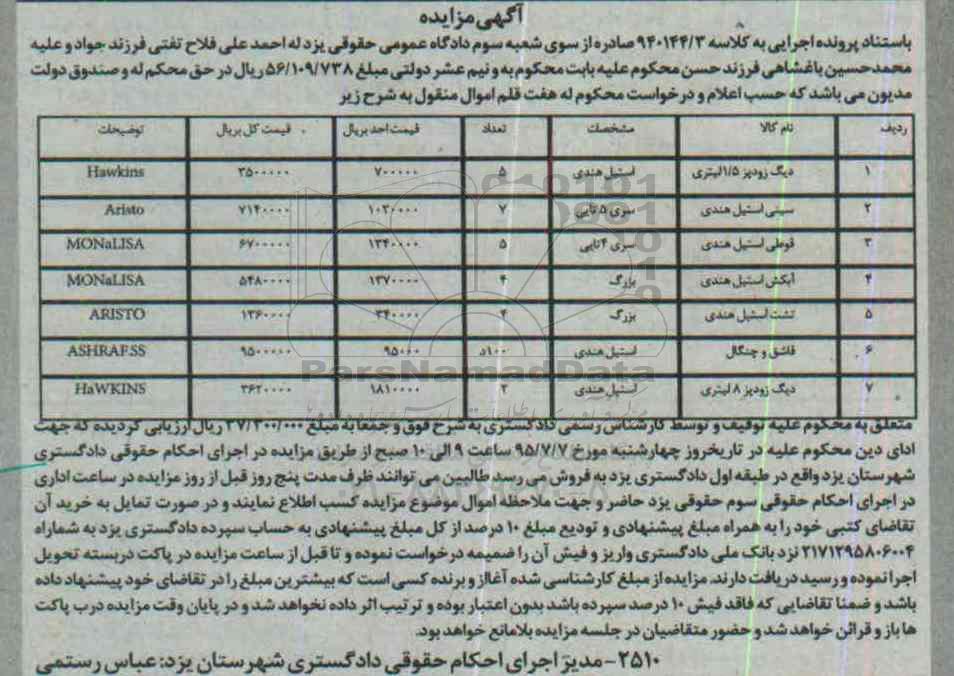 آگهی مزایده
باستناد پرونده اجرایی به کلاسه ۹۴۰۱۴۴/۳ صادره از سوی شعبه سوم دادگاه عمومی حقوقی یزد له احمد علی فلاح تفتی فرزند جواد و علیه
محمدحسین باغشاهی فرزند حسن محکوم علیه بابت محکوم به و نیم عشر دولتی مبلغ ۵۶/۱۰۹/۷۳۸ ریال در حق محکم له و صندوق دولت
مدیون می باشد که حسب اعلام و درخواست محکوم له هفت قلم اموال منقول به شرح زیر
ردیف نام کالا مشخصات تعداد قیمت احد بریال قیمت کل بریال توضیحات
۱ دیگ زودپز ۱/۵ لیتری استیل هندی ۵ ۷۰۰۰۰۰ ۳۵۰۰۰۰۰ Hawkins
۲ سینی استیل هندی سری ۵ تایی ۷ ۱۰۲۰۰۰۰ ۷۱۴۰۰۰۰ Aristo
۳ قوطی استیل هندی سری ۴ تایی ۵ ۱۳۴۰۰۰۰ ۶۷۰۰۰۰۰ MONaLISA
۴ آبکش استیل هندی بزرگ ۴ ۱۳۷۰۰۰۰ ۵۴۸۰۰۰۰ MONaLISA
۵ تشت استیل هندی بزرگ ۴ ۳۴۰۰۰۰ ۱۳۶۰۰۰۰ ARISTO
۶ قاشق و چنگال استیل هندی ۱۰۰د ۹۵۰۰۰ ۹۵۰۰۰۰۰ ASHRAF.SS
۷ دیگ زودپز ۸ لیتری استیل هندی ۲ ۱۸۱۰۰۰۰ ۳۶۲۰۰۰۰ HaWKINS
ParsNamadData
متعلق به محکوم علیه توقیف و توسط کارشناس رسمی دادگستری به شرح فوق و جمعا به مبلغ ۳۷/۳۰۰/۰۰۰ ریال ارزیابی گردیده که جهت
ادای دین محکوم علیه در تاریخروز چهارشنبه مورخ ۹۵/۷/۷ ساعت ۹ الی ۱۰ صبح از طریق مزایده در اجرای احکام حقوقی دادگستری
شهرستان یزد واقع در طبقه اول دادگستری یزد به فروش می رسد طالبین می توانند ظرف مدت پنج روز قبل از روز مزایده در ساعت اداری
در اجرای احکام حقوقی سوم حقوقی یزد حاضر و جهت ملاحظه اموال موضوع مزایده کسب اطلاع نمایند و در صورت تمایل به خرید آن
تقاضای کتبی خود را به همراه مبلغ پیشنهادی و تودیع مبلغ ۱۰ درصد از کل مبلغ پیشنهادی به حساب سپرده دادگستری یزد به شماراه
۲۱۷۱۲۹۵۸۰۶۰۰۴ نزد بانک ملی دادگستری واریز و فیش آن را ضمیمه درخواست نموده و تا قبل از ساعت مزایده در پاکت دربسته تحویل
اجرا نموده و رسید دریافت دارند. مزایده از مبلغ کارشناسی شده آغاز و برنده کسی است که بیشترین مبلغ را در تقاضای خود پیشنهاد داده
باشد و ضمنا تقاضایی که فاقد فیش ۱۰ درصد سپرده باشد بدون اعتبار بوده و ترتیب اثر داده نخواهد شد و در پایان وقت مزایده درب پاکت
ها باز و قرائن خواهد شد و حضور متقاضیان در جلسه مزایده بلامانع خواهد بود.
۲۵۱۰-مدیر اجرای احکام حقوقی دادگستری شهرستان یزد: عباس رستمی